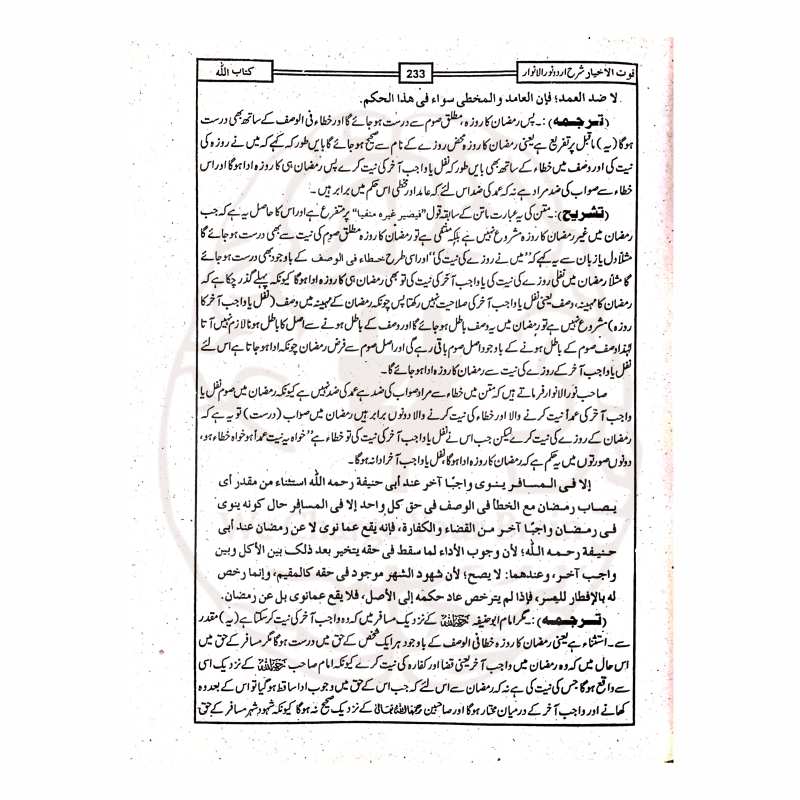 قوت الاخیار شرح اردو نور الانوار 233 کتاب اللہ
لا ضد العمد؛ فإن العامد والمخطی سواء فی هذا الحکم.
(ترجمه):۔ پس رمضان کا روزہ مطلق صوم سے درست ہو جائے گا اور خطاء فی الوصف کے ساتھ بھی درست
ہوگا (یہ) ماقبل پر تفریع ہے یعنی رمضان کا روزہ محض روزے کے نام سے صحیح ہو جائے گا بایں طور کہ کہے کہ میں نے روزہ کی
نیت کی اور وصف میں خطاء کے ساتھ بھی بایں طور کہ نفل یا واجب آخر کی نیت کرے پس رمضان ہی کا روزہ ادا ہوگا اور اس
خطاء سے صواب کی ضد مراد ہے نہ کہ عمد کی ضد اس لئے کہ عامد اور مخطی اس حکم میں برابر ہیں۔
(تشریح):۔ متن کی یہ عبارت ماتن کے سابقہ قول ”فیصیر غیرہ منفیا“ پر متفرع ہے اور اس کا حاصل یہ ہے کہ جب
رمضان میں غیر رمضان کا روزہ مشروع نہیں ہے بلکہ منفی ہے تو رمضان کا روزہ مطلق صوم کی نیت سے بھی درست ہو جائے گا
مثلاً دل یا زبان سے یہ کہے کہ ”میں نے روزے کی نیت کی“ اور اسی طرح خطاء فی الوصف کے باوجود بھی درست ہو جائے
گا مثلاً رمضان میں نفلی روزے کی نیت کی یا واجب آخر کی نیت کی تو بھی رمضان ہی کا روزہ ادا ہوگا کیونکہ پہلے گذر چکا ہے کہ
رمضان کا مہینہ، وصف یعنی نفل یا واجب آخر کی صلاحیت نہیں رکھتا پس چونکہ رمضان کے مہینہ میں وصف (نفل یا واجب آخر کا
روزہ) مشروع نہیں ہے تو رمضان میں یہ وصف باطل ہو جائے گا اور وصف کے باطل ہونے سے اصل کا باطل ہونا لازم نہیں آتا
لہٰذا وصف صوم کے باطل ہونے کے باوجود اصل صوم باقی رہے گی اور اصل صوم سے فرض رمضان چونکہ ادا ہو جاتا ہے اس لئے
نفل یا واجب آخر کے روزے کی نیت سے رمضان کا روزہ ادا ہو جائے گا۔
صاحب نور الانوار فرماتے ہیں کہ متن میں خطاء سے مراد صواب کی ضد ہے عمد کی ضد نہیں ہے کیونکہ رمضان میں صوم نفل یا
واجب آخر کی عمداً نیت کرنے والا اور خطاء کی نیت کرنے والا دونوں برابر ہیں رمضان میں صواب (درست) تو یہ ہے کہ
رمضان کے روزے کی نیت کرے لیکن جب اس نے نفل یا واجب آخر کی نیت کی تو خطاء ہے ”خواہ یہ نیت عمداً ہو خواہ خطاء ہو،
دونوں صورتوں میں یہ حکم ہے کہ رمضان کا روزہ ادا ہوگا، نفل یا واجب آخر ادا نہ ہوگا۔
إلا فی المسافر ینوی واجبًا آخر عند أبی حنیفة رحمه الله استثناء من مقدر أی
یصاب رمضان مع الخطأ فی الوصف فی حق کل واحد إلا فی المسافر حال کونه ینوی
فی رمضان واجبًا آخر من القضاء والکفارة، فإنه یقع عما نوی لا عن رمضان عند أبی
حنیفة رحمه الله؛ لأن وجوب الأداء لما سقط فی حقه یتخیر بعد ذلک بین الأکل وبین
واجب آخر، وعندهما: لا یصح؛ لأن شهود الشهر موجود فی حقه کالمقیم، وإنما رخص
له بالإفطار للیسر، فإذا لم یترخص عاد حکمه إلی الأصل، فلا یقع عمانوی بل عن رمضان.
(ترجمه):۔ مگر امام ابوحنیفہ رحمہ اللہ کے نزدیک مسافر میں کہ وہ واجب آخر کی نیت کر سکتا ہے (یہ) مقدر
سے استثناء ہے یعنی رمضان کا روزہ خطا فی الوصف کے باوجود ہر ایک شخص کے حق میں درست ہوگا مگر مسافر کے حق میں
اس حال میں کہ وہ رمضان میں واجب آخر یعنی قضا اور کفارہ کی نیت کرے کیونکہ امام صاحب کے نزدیک اسی
سے واقع ہوگا جس کی نیت کی ہے نہ کہ رمضان سے اس لئے کہ جب اس کے حق میں وجوب ادا ساقط ہو گیا تو اس کے بعد وہ
کھانے اور واجب آخر کے درمیان مختار ہوگا اور صاحبین کے نزدیک صحیح نہ ہوگا کیونکہ شہود شہر مسافر کے حق